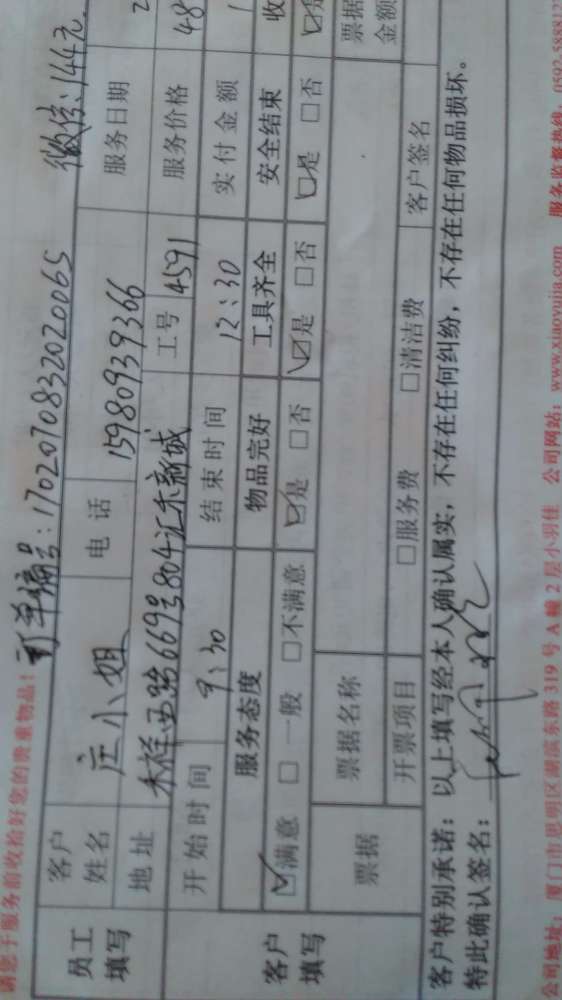 请您于服务前收拾好您的贵重物品!
订单编号:1702070832020065 微信:144元
员工填写 客户姓名 庄小姐 电话 15980939366 服务日期 2
地址 禾祥西路669号804汇禾新城 工号 4591 服务价格 48
客户填写 开始时间 9:30 结束时间 12:30 实付金额 1
服务态度 物品完好 工具齐全 安全结束 收
☑满意 □一般 □不满意 ☑是 □否 ☑是 □否 ☑是 □否
票据 票据名称 票据金额
开票项目 □服务费 □清洁费 客户签名
客户特别承诺:以上填写经本人确认属实,不存在任何纠纷,不存在任何物品损坏。
特此确认签名:
公司地址:厦门市思明区湖滨东路319号A幢2层小羽佳 公司网站:www.xiaoyujia.com 服务监督热线:0592-5888127